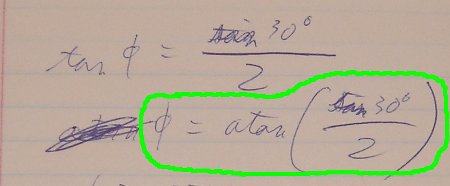 tan ϕ = tan 30° / 2
ϕ = atan ( tan 30° / 2 )